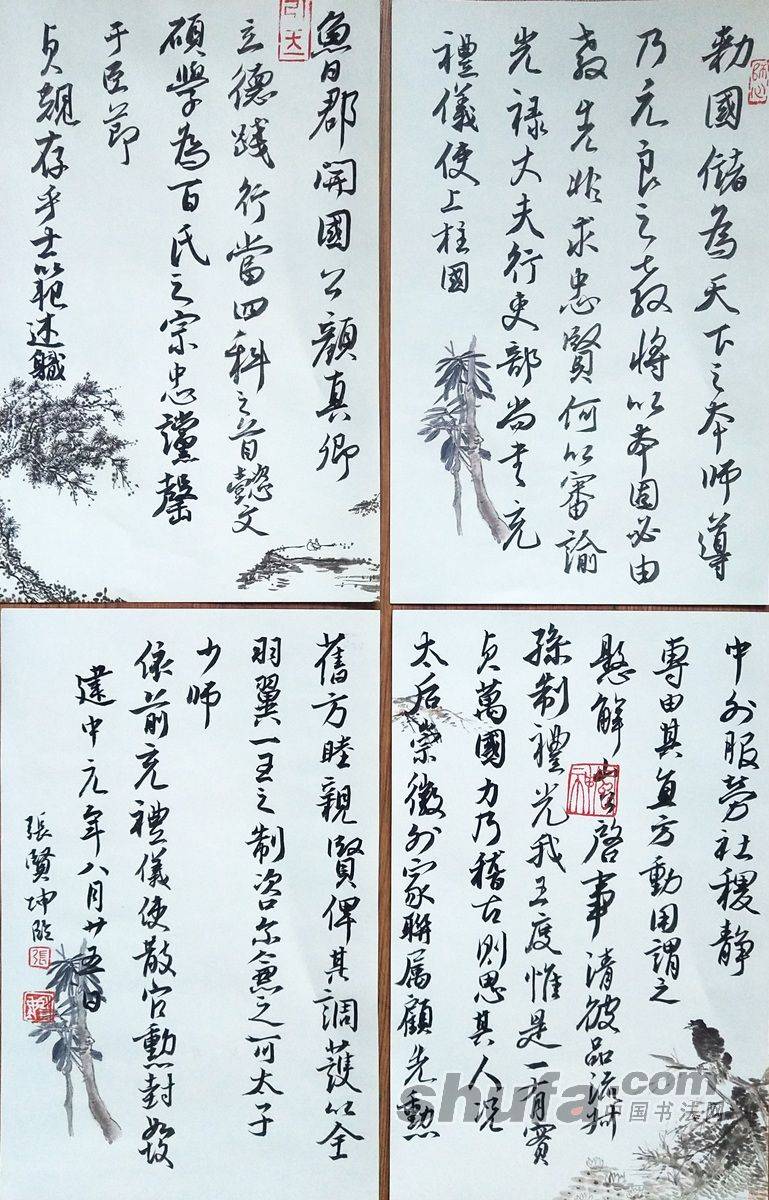 勅國儲為天下之本師導
乃元良之教將以本固必由
教先非求忠賢何以審諭
光禄大夫行吏部尚書充
禮儀使上柱國
魯郡開國公顏真卿
立德踐行當四科之首懿文
碩學為百氏之宗忠讜罄
于臣節
貞規存乎士範述職
中外服勞社稷靜
專由其直方動用謂之
懸解山公啓事清彼品流叔
孫制禮光我王度惟是一有實
貞萬國力乃稽古則思其人況
太后崇徽外家聯属顧先勳
舊方睦親賢俾其調護以全
羽翼一王之制咨尔兼之可太子
少師
依前充禮儀使散官勳封如故
建中元年八月廿五日
張賢坤臨
張
shufa.com
中国书法网